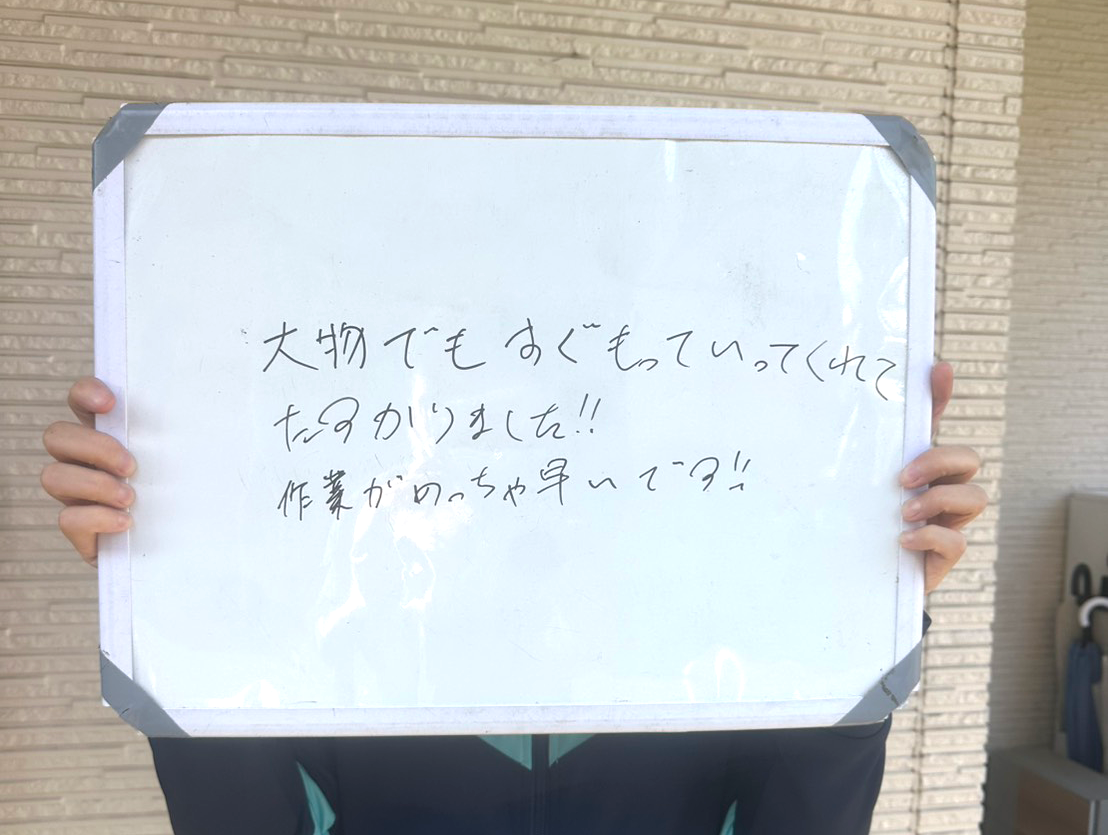 大物でもすぐもっていってくれて
たすかりました!!
作業がめっちゃ早いです!!